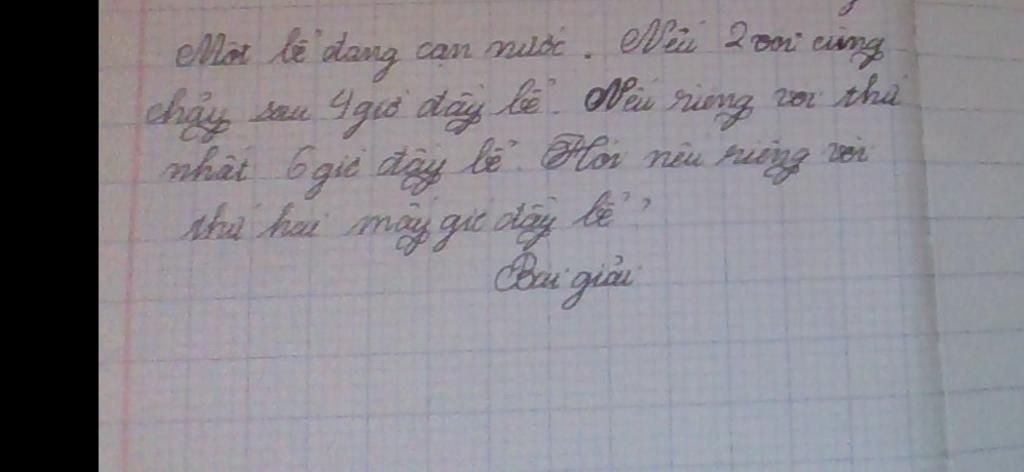 Một bể đang cạn nước. Nếu 2 vòi cùng
chảy sau 4 giờ đầy bể. Nếu riêng vòi thứ
nhất 6 giờ đầy bể. Hỏi nếu riêng vòi
thứ hai mấy giờ đầy bể?
Bài giải